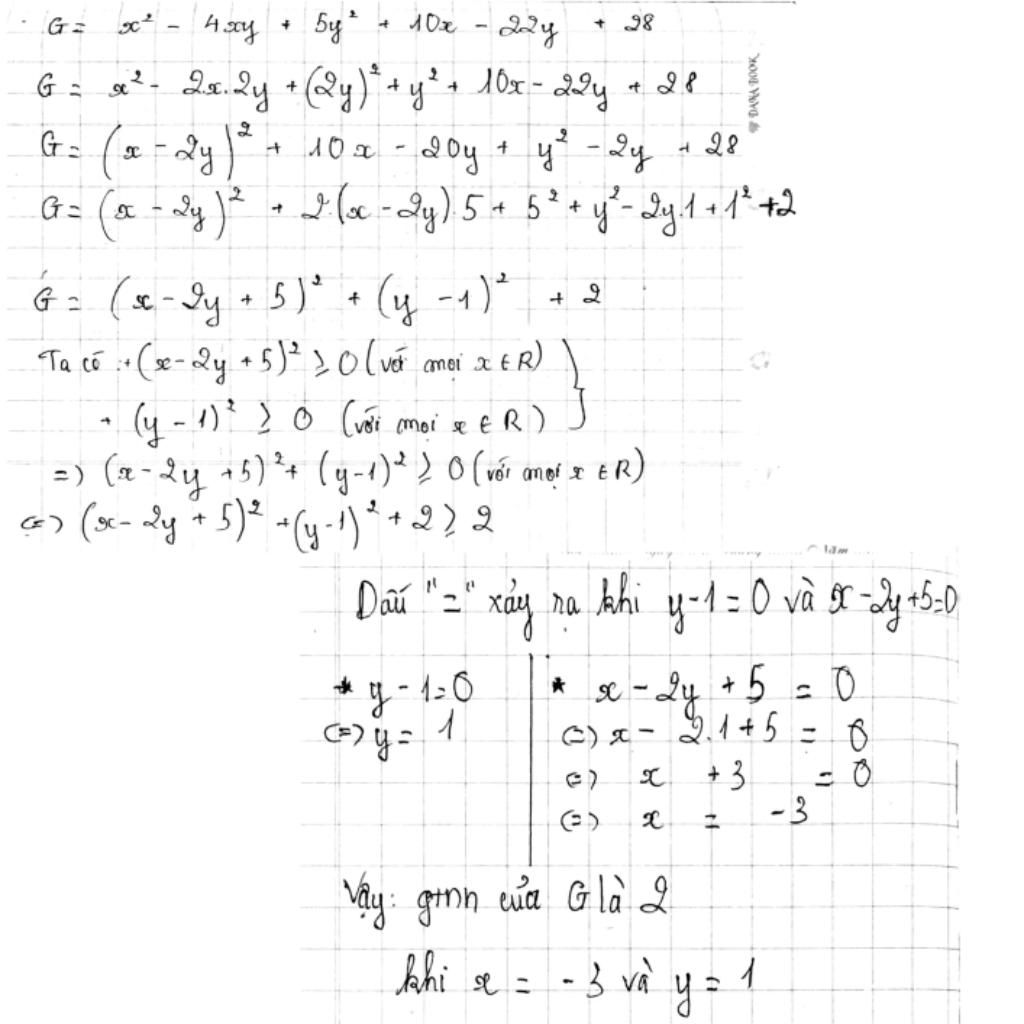 G = x² - 4xy + 5y² + 10x - 22y + 28
G = x² - 2x.2y + (2y)² + y² + 10x - 22y + 28
G = (x - 2y)² + 10x - 20y + y² - 2y + 28
G = (x - 2y)² + 2.(x - 2y).5 + 5² + y² - 2y.1 + 1² + 2
G = (x - 2y + 5)² + (y - 1)² + 2
Ta có : + (x - 2y + 5)² ≥ 0 (với mọi x ∈ R) }
+ (y - 1)² ≥ 0 (với mọi x ∈ R)
=> (x - 2y + 5)² + (y - 1)² ≥ 0 (với mọi x ∈ R)
<=> (x - 2y + 5)² + (y - 1)² + 2 ≥ 2
Dấu "=" xảy ra khi y - 1 = 0 và x - 2y + 5 = 0
* y - 1 = 0
<=> y = 1
* x - 2y + 5 = 0
<=> x - 2.1 + 5 = 0
<=> x + 3 = 0
<=> x = -3
Vậy: gtnn của G là 2
khi x = -3 và y = 1
DAINA BOOK